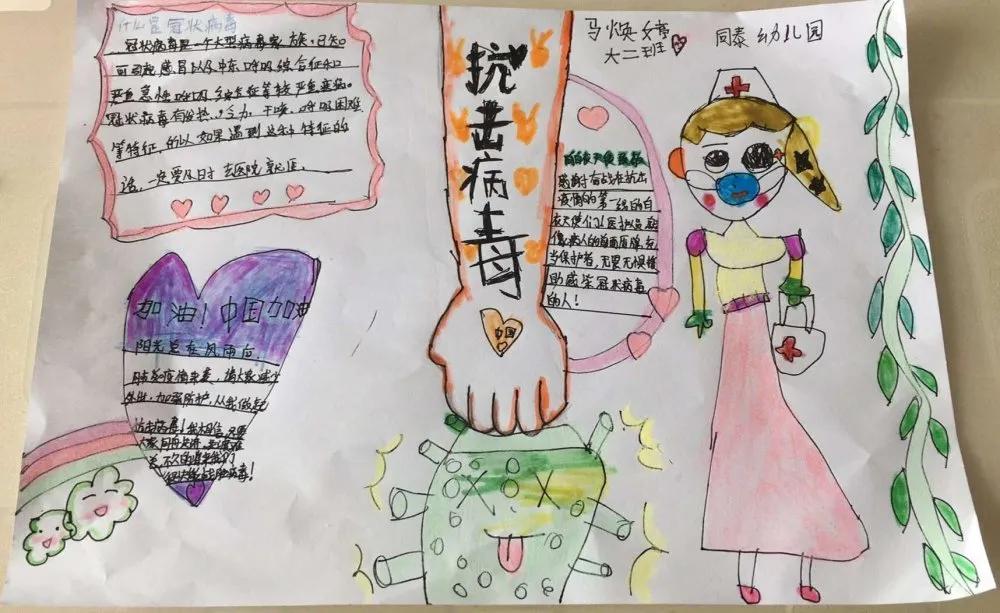 什么是冠状病毒
冠状病毒是一个大型病毒家族,已知
可引起感冒以及中东呼吸综合征和
严重急性呼吸综合征等较严重疾病。
冠状病毒有发热,乏力 干咳,呼吸困难
等特征,所以如果遇到这种特征的
话,一定要及时去医院就医。
抗击病毒
中国
马焕婷
大二班
同泰幼儿园
感谢奋战在抗击
疫情的第一线的白
衣天使们以医护人员
当保护者,无畏无惧援
助感染冠状病毒
的人!
加油!中国加油
阳光总在风雨后,
肺炎疫情来袭,请大家减少
外出,加强防护,从我做起
抗击病毒!我相信,只要
大家同舟共济